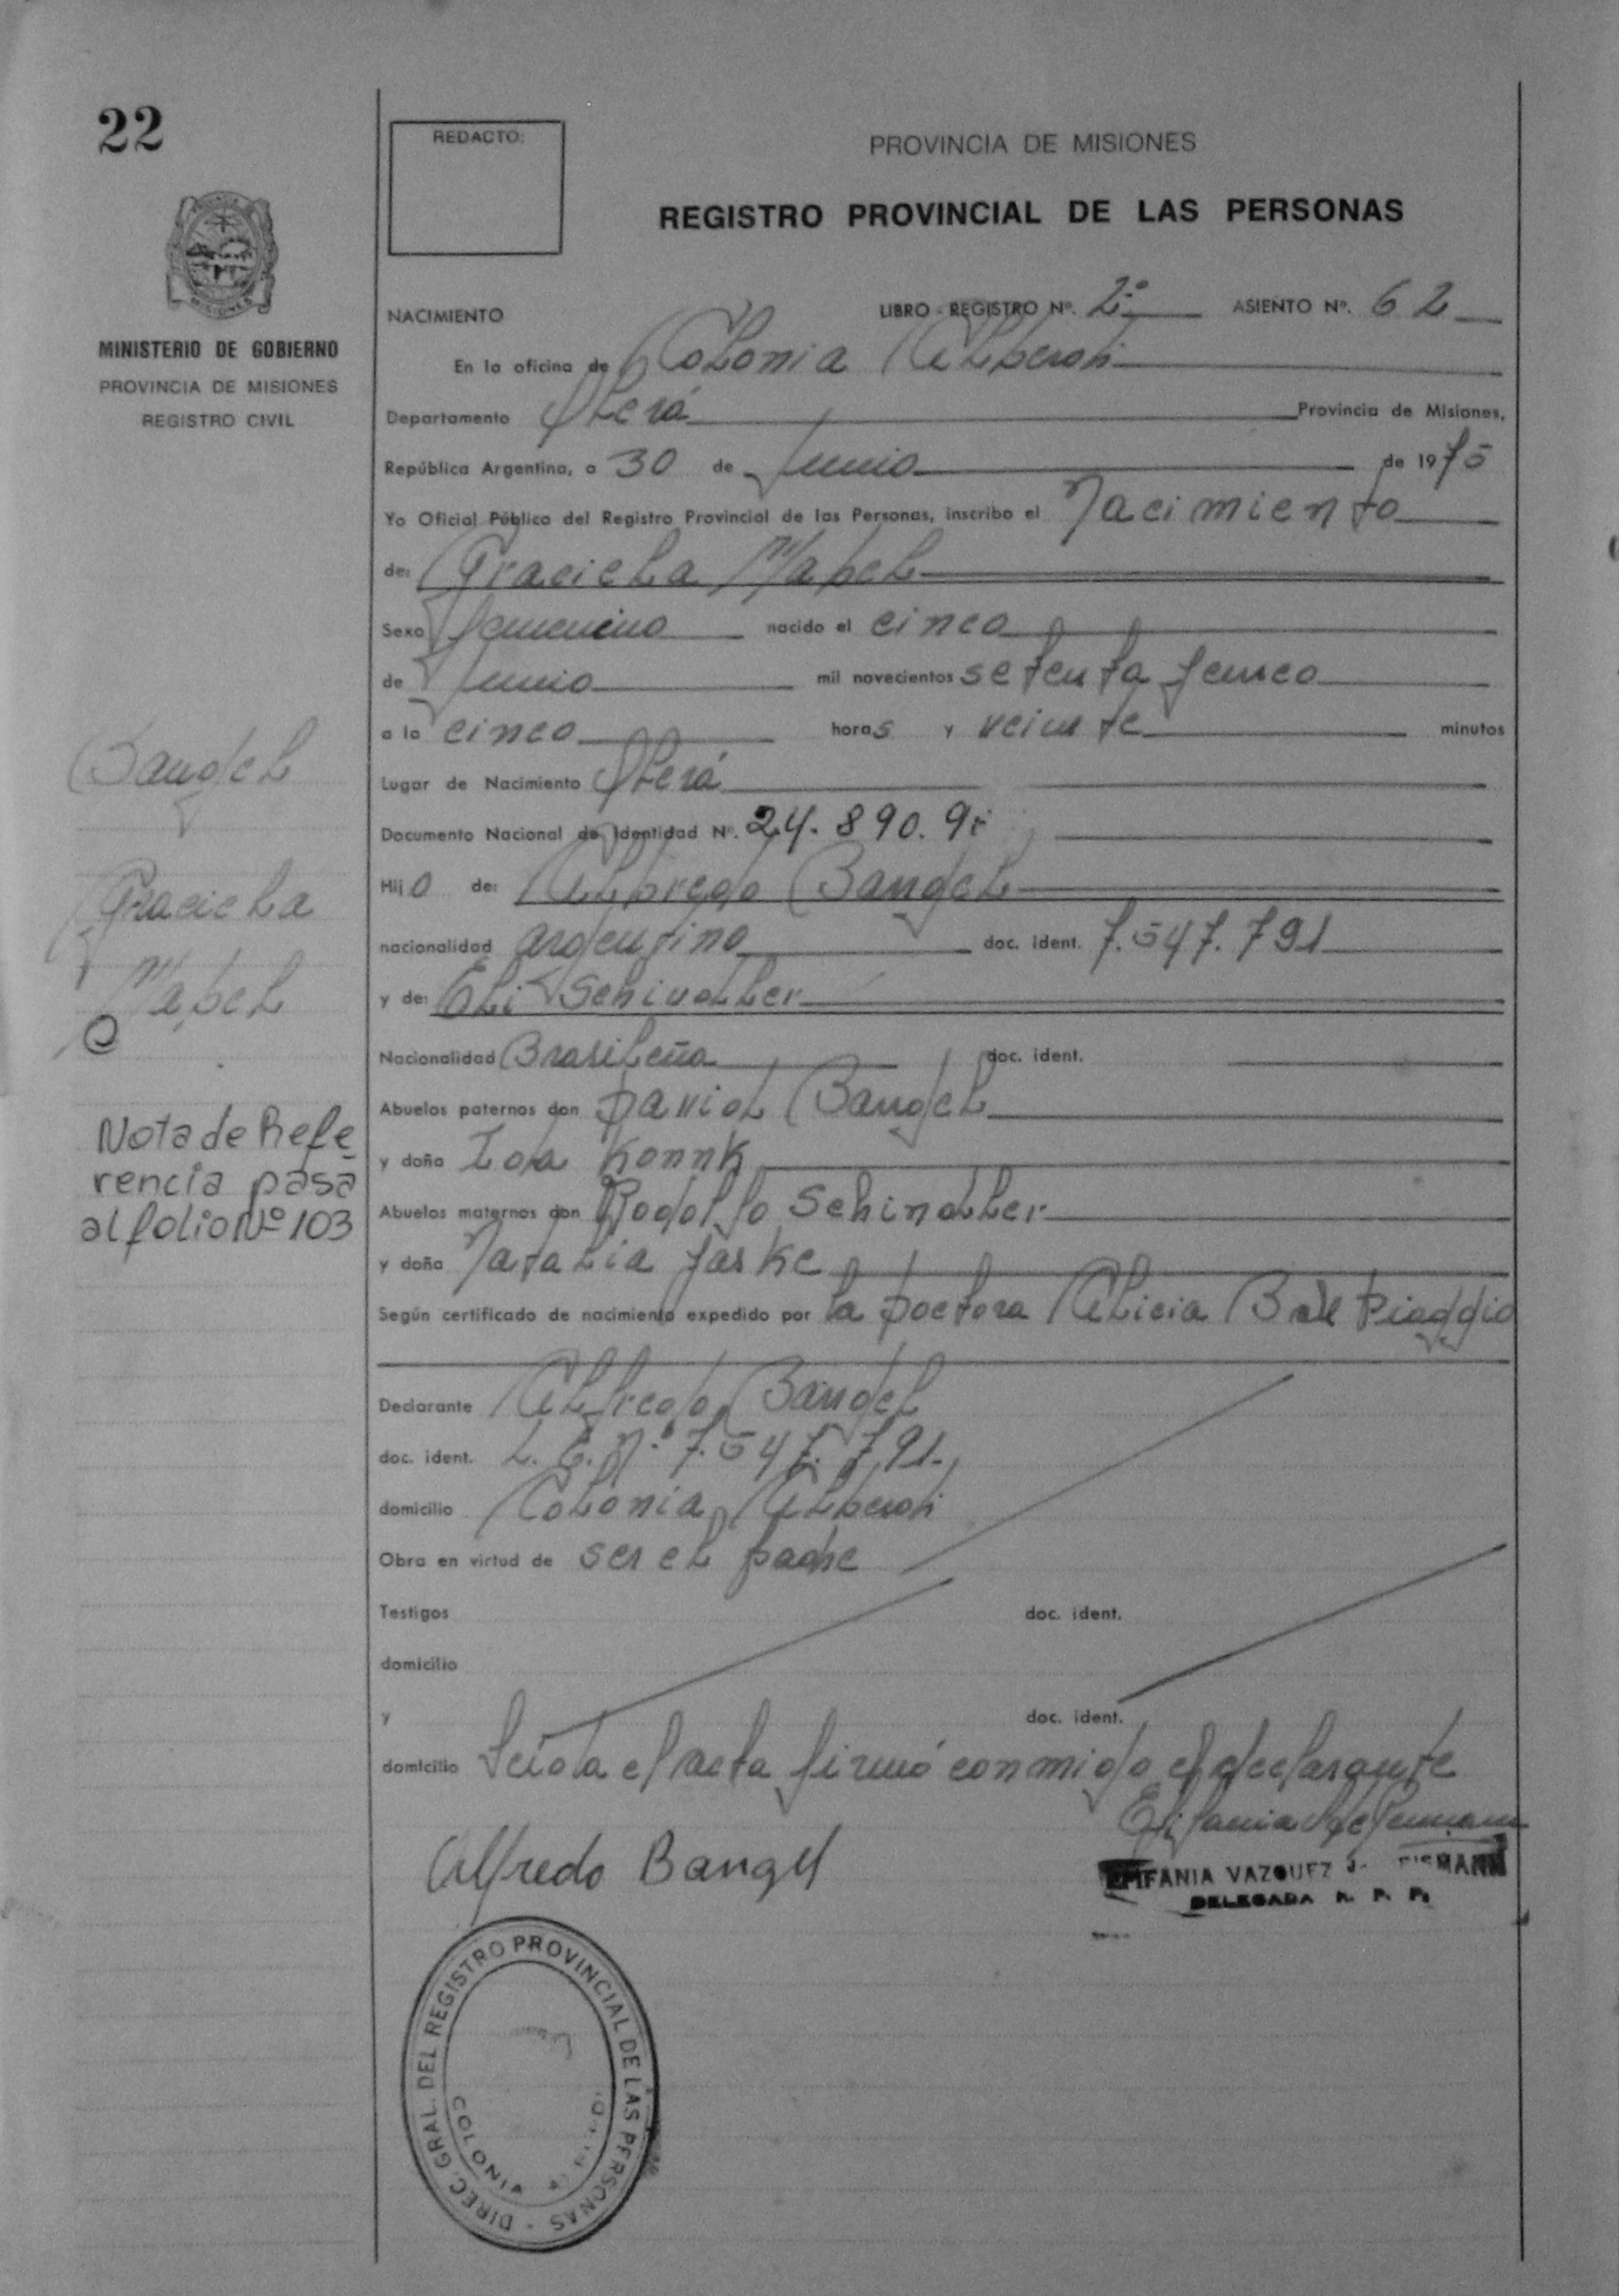 22
REDACTO:
PROVINCIA DE MISIONES
REGISTRO PROVINCIAL DE LAS PERSONAS
MINISTERIO DE GOBIERNO
PROVINCIA DE MISIONES
REGISTRO CIVIL
NACIMIENTO LIBRO - REGISTRO Nº. 2º ASIENTO Nº. 62
En la oficina de Colonia Alberdi
Departamento Oberá Provincia de Misiones,
República Argentina, a 30 de Junio de 1975
Yo Oficial Público del Registro Provincial de las Personas, inscribo el Nacimiento
de: Graciela Mabel
Sexo femenino nacido el cinco
de Junio mil novecientos setenta y cinco
a la cinco horas y veinte minutos
Lugar de Nacimiento Oberá
Documento Nacional de Identidad Nº. 24.890.9
Hijo de: Alfredo Bangel
nacionalidad argentino doc. ident. 7.547.791
y de: Eli Schindler
Nacionalidad Brasileña doc. ident.
Abuelos paternos don David Bangel
y doña Ida
Abuelos maternos don Rodolfo Schindler
y doña Natalia Jaske
Según certificado de nacimiento expedido por la Doctora Alicia B de Piaggio
Declarante Alfredo Bangel
doc. ident. L. E. Nº 7.547.791.
domicilio Colonia Alberdi
Obra en virtud de ser el padre
Testigos doc. ident.
domicilio
y doc. ident.
domicilio Leída el acta firmó conmigo el declarante
Alfredo Bangel
EPIFANIA VAZQUEZ
DELEGADA R. P. P.
Bangel
Graciela
Mabel
Nota de Refe
rencia pasa
al folio Nº 103
DIREC. GRAL. DEL REGISTRO PROVINCIAL DE LAS PERSONAS -
COLONIA